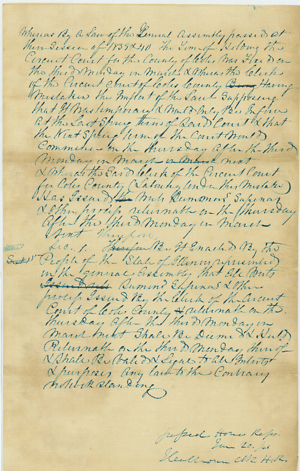 Whereas By A Law of the General Assembly passed at
their Session of 1839 & 40 the Time of Holding the
Circuit Court for the County of Coles Was Fixed on
the third Monday in March & Whereas the Clerk
of the Circuit Court of Coles County Having
Mistaken the Import of the Law Supposing
that
at the Last Spring term of Said Court & that
the Next Spring Term of the Court Would
Commence on the Thursday After the third
Monday in March next
& Whereas the Said Clerk of the Circuit Court
for Coles County Laboring Under this Mistake
Has Issued Writs Summons Supoenas
& Other process returnable on the Thursday
After the third Monday in March
Next
Sec. 1. Be It Enacted By the
People of the State of Illinois represented
in the general Assembly that All Writs
Summons Supoenas & Other
process Issued By the Clerk of the Circuit
Court of Coles County & returnable on the
Thursday After the third Monday in
March next Shall Be Deemed & Held
Returnable on the third Monday
& Shall Be Valid & Legal to All Intents
& purposes any law to the Contrary
Notwithstanding
passed House Reps.